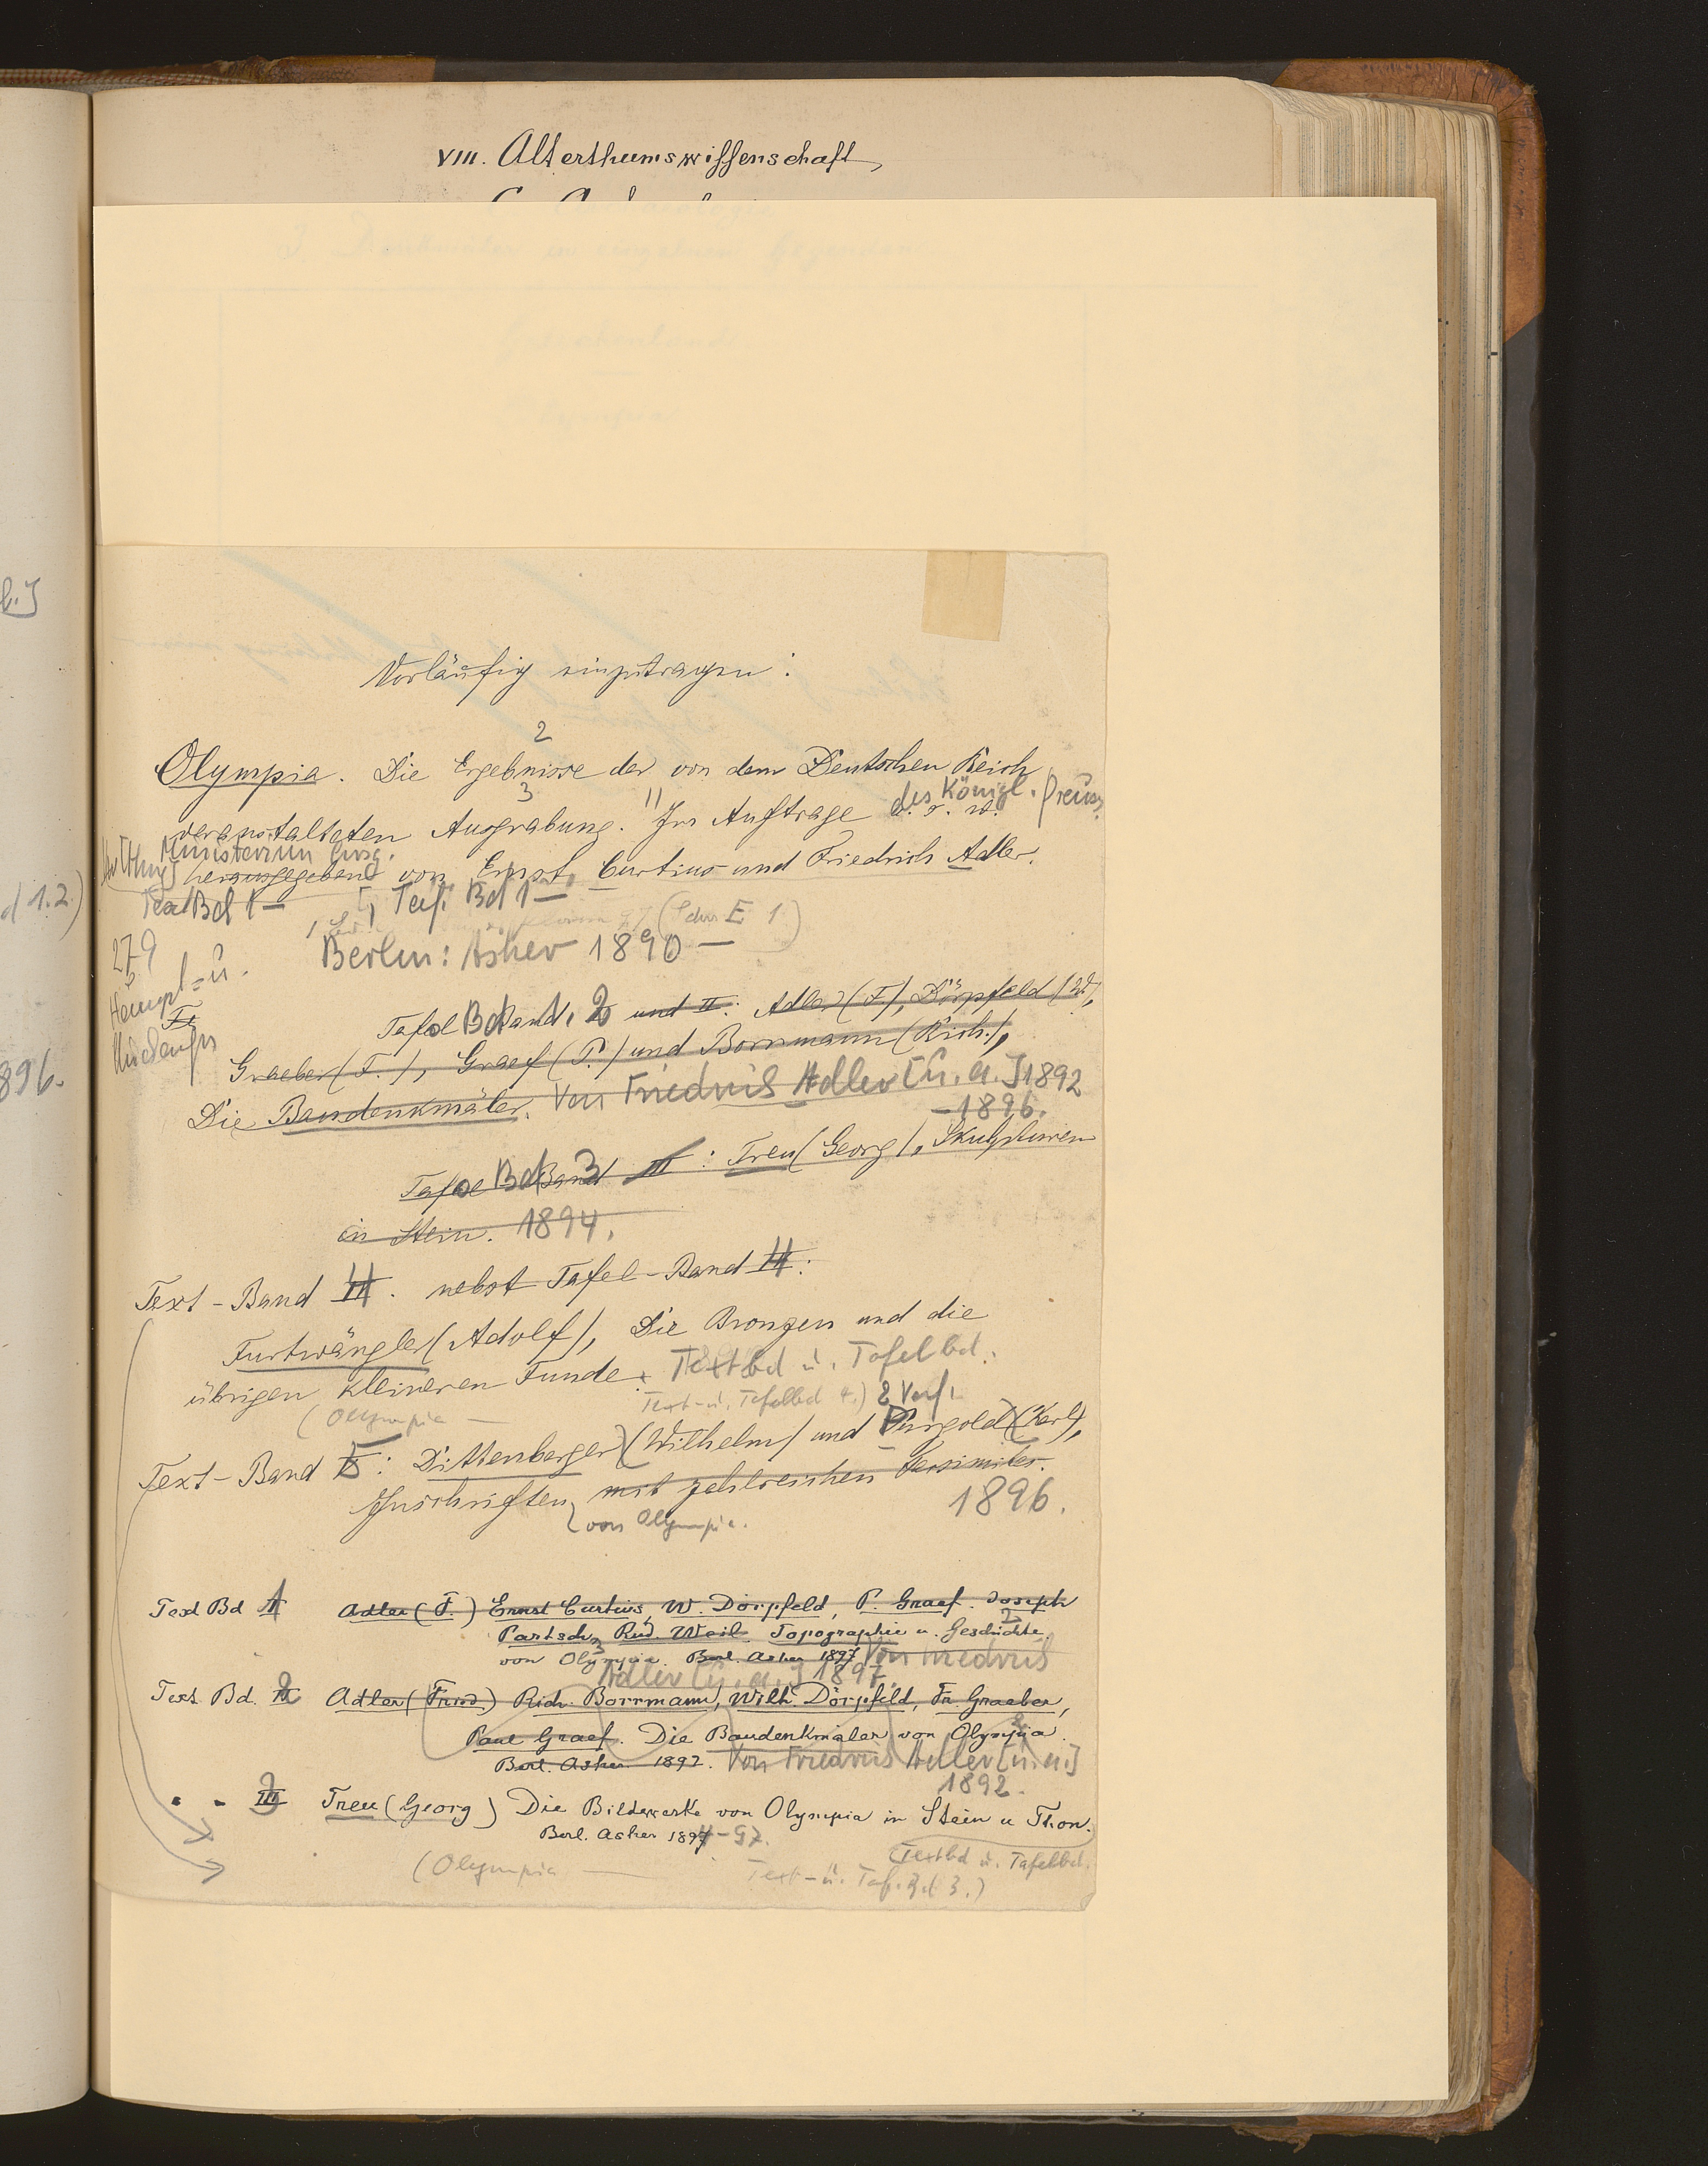 VIII. Alterthumswissenschaft,
Vorläufig einzutragen:
2
Olympia. Die Ergebnisse der von dem Deutschen Reich
3
veranstalteten Ausgrabung. Im Auftrage d. s. w. des Königl. Preuss.
Ministerium hrsg.
herausgegeben von Ernst Curtius und Friedrich Adler.
Text Bd 1— [, Taf. Bd 1—
279
Berlin: Asher 1890—
Hauptz. u.
Tafel Bd Band 1. 2 und II: Adler (F.), Dörpfeld (W.),
Graeber (F.), Graef (P.) und Borrmann (Rich.),
Die Baudenkmäler. Von Friedrich Adler [u. a.] 1892
—1896.
Tafel Bd Band 3 III: Treu (Georg), Skulpturen
in Stein. 1894.
Text-Band 4. nebst Tafel-Band 4:
Furtwängler (Adolf), Die Bronzen und die
übrigen kleineren Funde. Textbd u. Tafelbd.
(Olympia — Text- u. Tafelbd 4.) 2 Verf.
Text-Band 5: Dittenberger (Wilhelm) und Purgold (Karl),
Inschriften mit zahlreichen Facsimiles.
von Olympia. 1896.
Text Bd 1 Adler (F.) Ernst Curtius, W. Dörpfeld, P. Graef. Joseph
Partsch, Rud. Weil. Topographie u. Geschichte
von Olympia. Berl. Asher 1897 Von Friedrich
Adler [u. a.] 1897
Text. Bd. 2 Adler (Fried.) Rich. Borrmann, Wilh. Dörpfeld, Fr. Graeber,
Paul Graef. Die Baudenkmäler von Olympia.
Berl. Asher 1892. Von Friedrich Adler [u. a.]
1892.
" - 3 Treu (Georg) Die Bildwerke von Olympia in Stein u Thon.
Berl. Asher 1894-97.
(Textbd u. Tafelbd.
(Olympia — Text- u. Taf. Bd 3.)
d 1.2)
896.